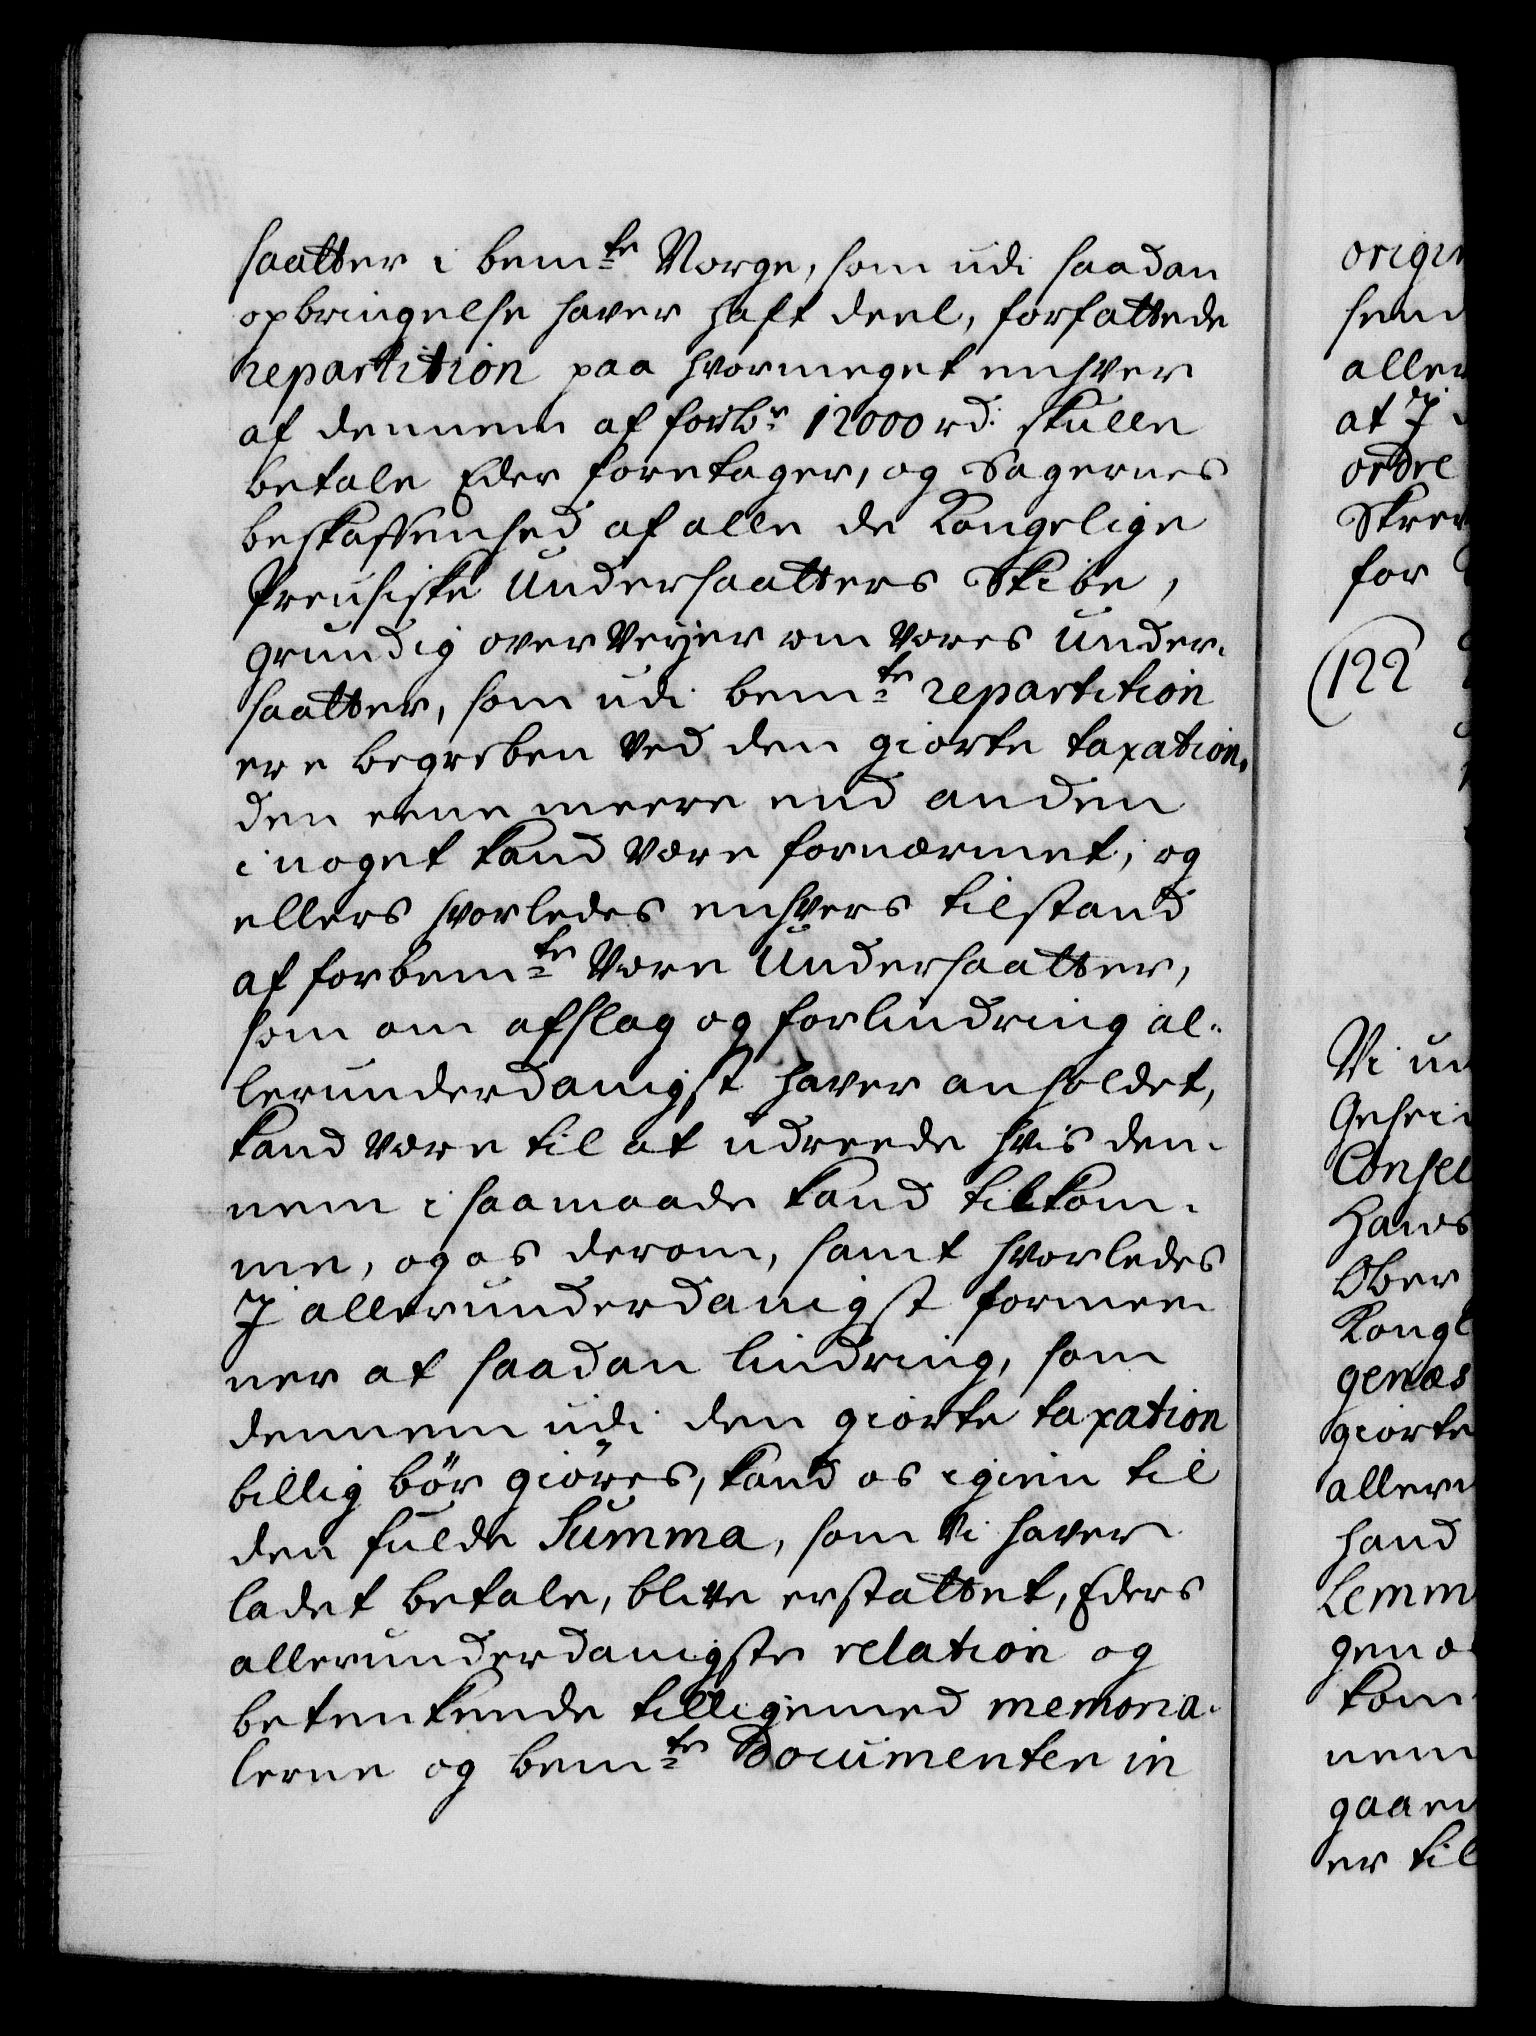 saatter i bem:te Norge, som udi saadan
opbringelse haver haft deel, forfattede
repartition paa hvormeget enhver
af dennem af forb:te 12000 rd: skulle
betale Eder foretager, og Sagernes
beskaffenhed af alle de Kongelige
Preusiske Undersaatters Skibe,
grundig overVeyer om Vores Under-
saatter, som udi bem:te repartition
ere begreben Ved den giorte taxation,
den eene meere end anden
i noget kand Være fornærmet; og
ellers hvorledes enhvers tilstand
af forbem:te Vore Undersaatter,
som om afslag og forlindring al-
lerunderdanigst haver anholdet,
kand være til at udreede hvis den-
nem i saamaade kand tilkom-
me, og os derom, samt hvorledes
I allerunderdanigst formee-
ner at saadan lindring, som
dennem udi den giorte taxation
billig bør giøres, kand os igien til
den fulde Summa, som Vi haver
ladet betale, blive erstattet, Eders
allerunderdanigste relation og
betenkende tilligemed memoria-
lerne og bem:te Documenter in
origin
send
aller
at I
ordre
Skrev
for
(122
Vi un
Gehei
Consei
Hans
Ober
Kongl
genæs
giorte
aller
hand
Lemm
genæ
kom
nem
gaaen
er til